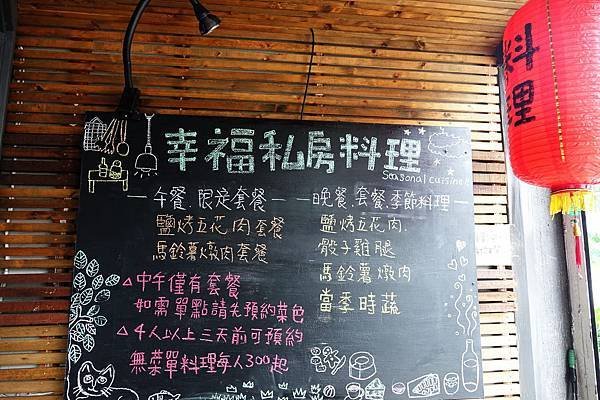 幸福私房料理
Seasonal cuisine
午餐.限定套餐
鹽烤五花肉套餐
馬鈴薯燉肉套餐
△中午僅有套餐
如需單點請先預約菜色
△4人以上三天前可預約
無菜單料理每人300起
晚餐.套餐.季節料理
鹽烤五花肉.
骰子雞腿
馬鈴薯燉肉
當季時蔬
料理